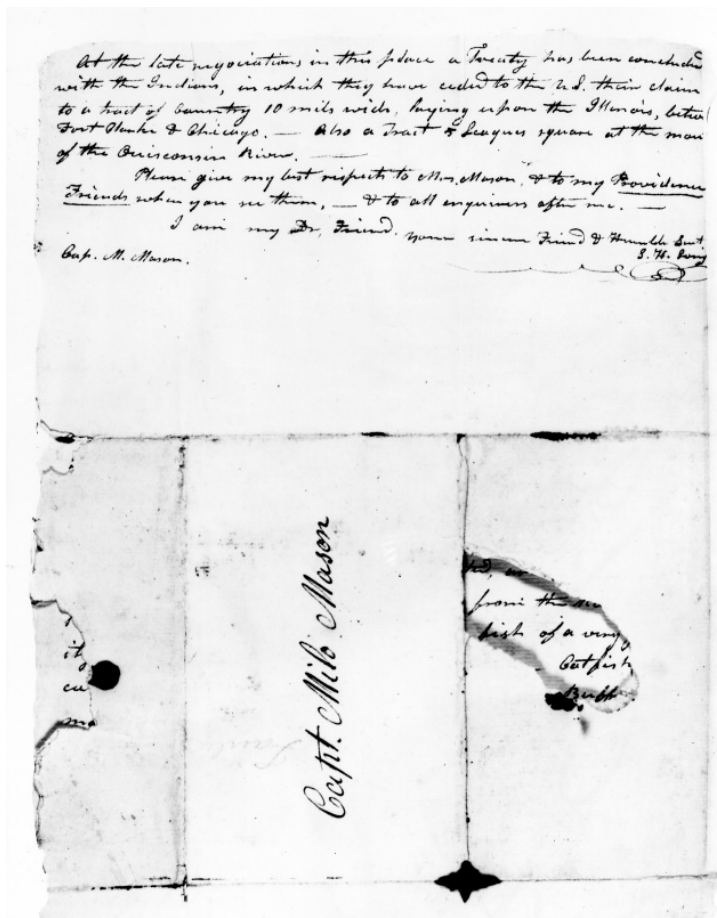 At the late negociations in this place a Treaty has been concluded
with the Indians, in which they have ceded to the U.S. their claim
to a tract of Country 10 mils wide, laying upon the Illinois, betw
Fort Clarke & Chicago. — Also a Tract 5 Leagues square at the mou
of the Ouisconsin River. —
Please give my best respects to Mrs. Mason, & to my Providence
Friends when you see them, — & to all enquirers after me. —
I am my Dr. Friend. your sincere Friend & Humble Servt.
S. H. Long
Cap. M. Mason.
Capt. Milo Mason
from the
fish of a very
Catfish
Buff